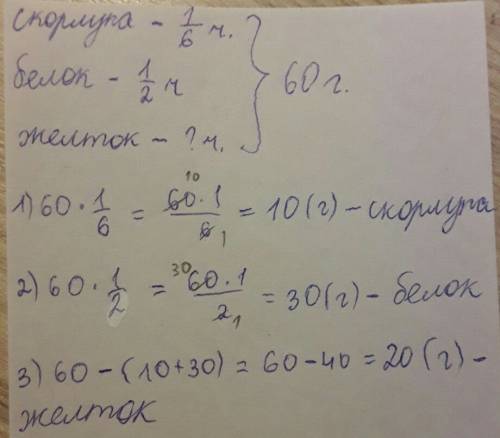 скорлупа - 1/6 ч.
белок - 1/2 ч
желток - ? ч.
} 60 г.
1) 60 · 1/6 = 60 · 1/6 = 10 (г) - скорлупа
10
1
2) 60 · 1/2 = 60 · 1/2 = 30 (г) - белок
30
1
3) 60 - (10 + 30) = 60 - 40 = 20 (г) -
желток